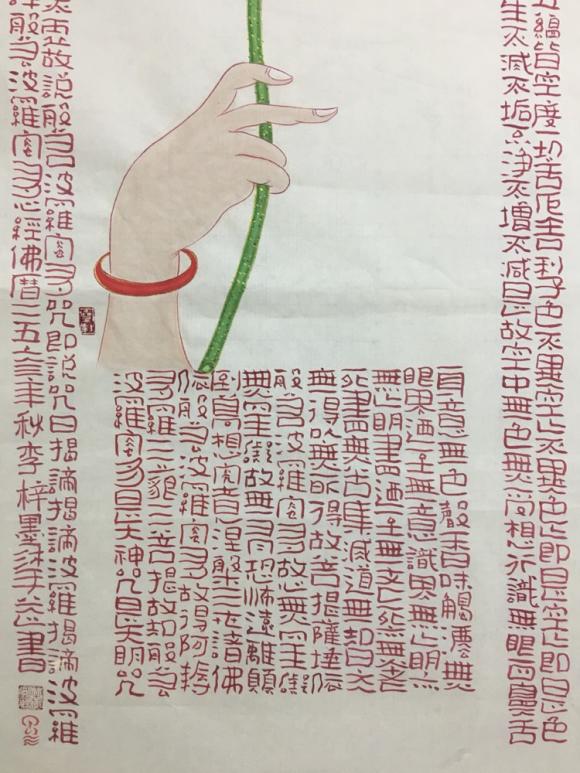 五緼皆空度一切苦厄舍利子色不異空〻不異色〻即是空〻即是色
生不滅不垢不淨不增不減是故空中無色無受想行識無眼耳鼻舌
身意無色聲香味觸塵無
眼界迺至無意識界無〻明亦
無〻明盡迺至無老死亦無老
死盡無苦集滅道無智亦
無得以無所得故菩提薩埵依
般若波羅密多故心無罣礙
無罣礙故無有恐怖遠離顛
倒夢想究竟涅槃三世諸佛
依般若波羅密多故得阿耨
多羅三藐三菩提故知般若
波羅密多是大神咒是大明咒
不虛故說般若波羅密多咒即說咒曰揭諦揭諦波羅揭諦波羅
般若波羅密多心經佛曆年秋李梓墨沐手恭書